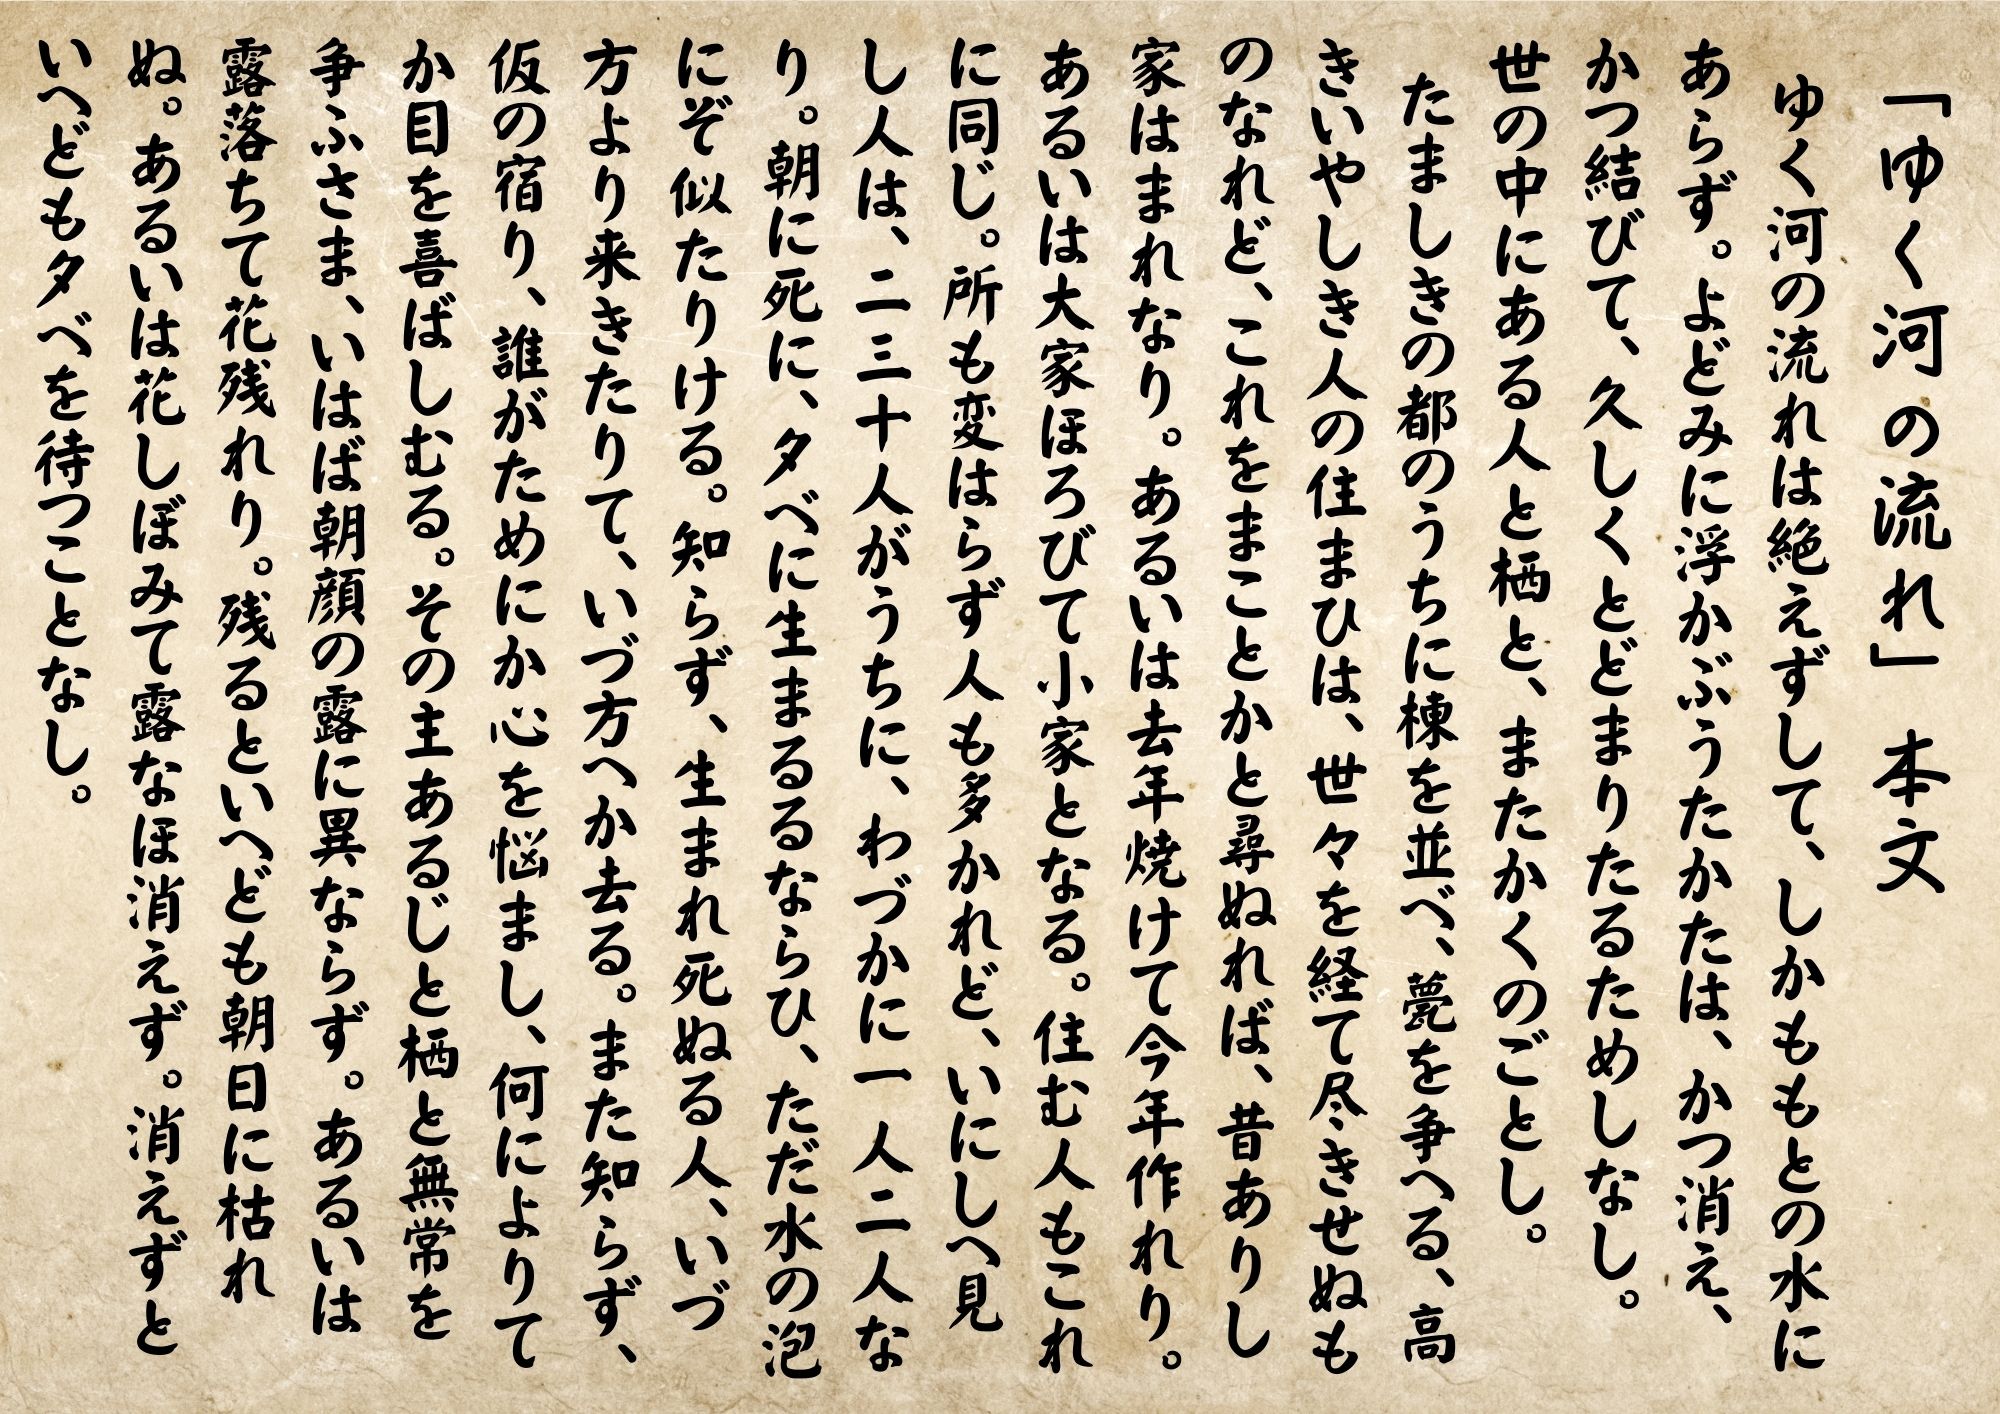 「ゆく河の流れ」 本文
ゆく河の流れは絶えずして、しかももとの水に
あらず。よどみに浮かぶうたかたは、かつ消え、
かつ結びて、久しくとどまりたるためしなし。
世の中にある人と栖と、またかくのごとし。
たましきの都のうちに棟を並べ、甍を争へる、高
きいやしき人の住まひは、世々を経て尽きせぬも
のなれど、これをまことかと尋ぬれば、昔ありし
家はまれなり。あるいは去年焼けて今年作れり。
あるいは大家ほろびて小家となる。住む人もこれ
に同じ。所も変はらず人も多かれど、いにしへ見
し人は、二三十人がうちに、わづかに一人二人な
り。朝に死に、夕べに生まるるならひ、ただ水の泡
にぞ似たりける。知らず、生まれ死ぬる人、いづ
方より来きたりて、いづ方へか去る。また知らず、
仮の宿り、誰がためにか心を悩まし、何によりて
か目を喜ばしむる。その主あるじと栖と無常を
争ふさま、いはば朝顔の露に異ならず。あるいは
露落ちて花残れり。残るといへども朝日に枯れ
ぬ。あるいは花しぼみて露なほ消えず。消えずと
いへども夕べを待つことなし。